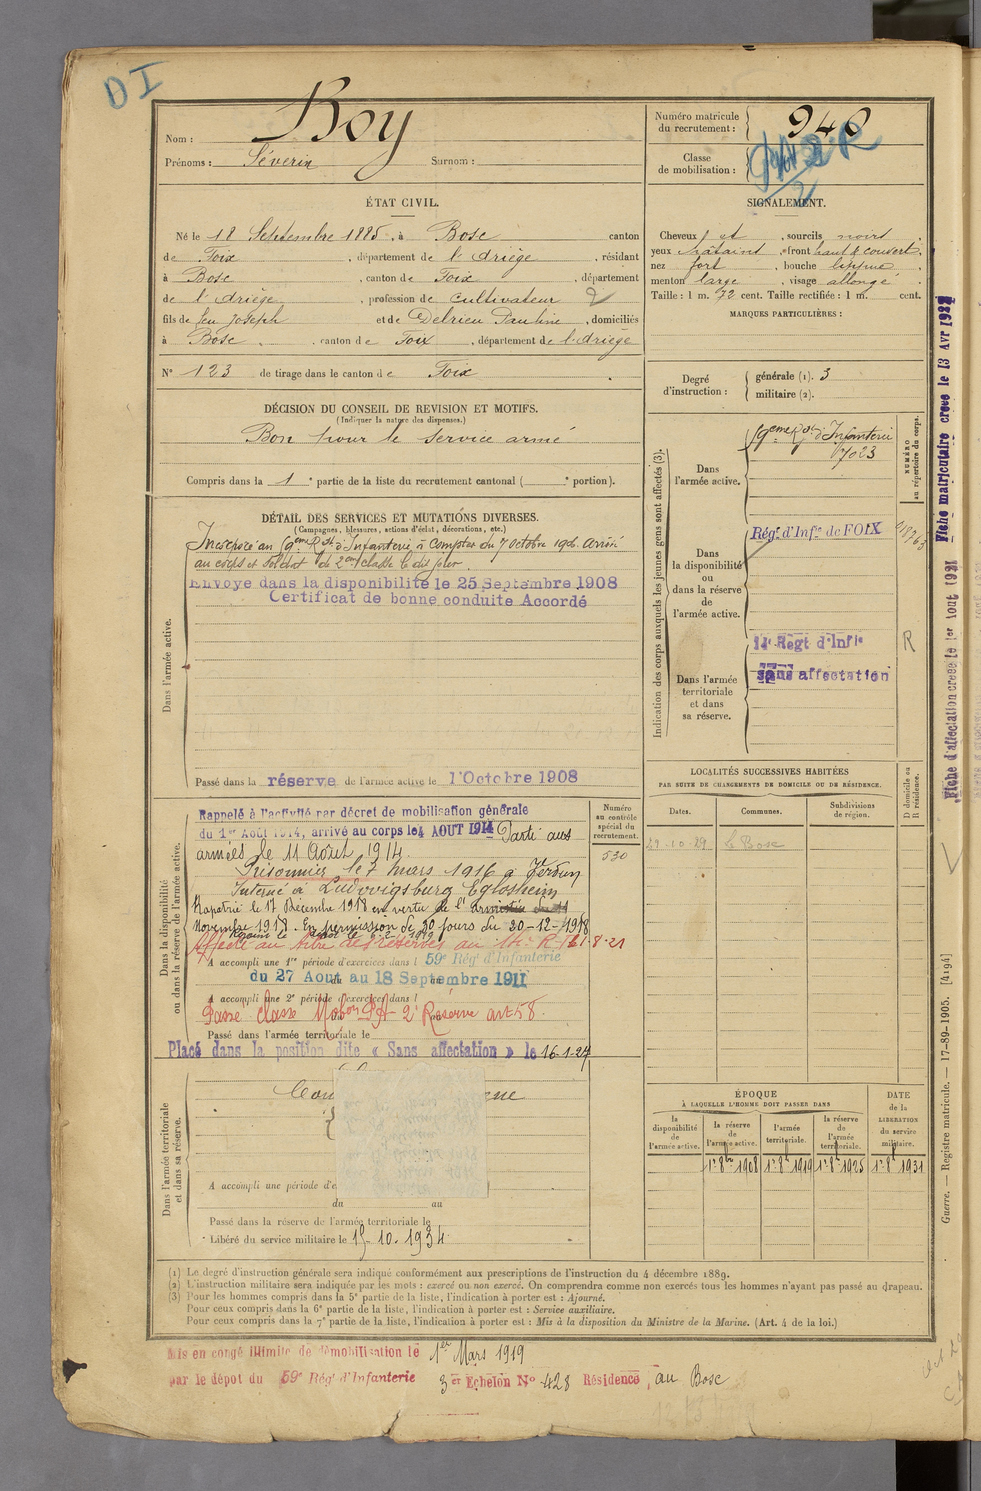 DI
Nom : Boy
Prénoms : Séverin Surnom :
Numéro matricule du recrutement : 940
Classe de mobilisation :
ÉTAT CIVIL.
Né le 18 Septembre 1885, à Bosc canton
de Foix, département de l'Ariège, résidant
à Bosc, canton de Foix, département
de l'Ariège, profession de cultivateur
fils de feu Joseph et de Delrieu Pauline, domiciliés
à Bosc, canton de Foix, département de l'Ariège
N° 123 de tirage dans le canton de Foix
SIGNALEMENT.
Cheveux et, sourcils noirs
yeux châtains, front haut & couvert,
nez fort, bouche lippue,
menton large, visage allongé
Taille : 1 m. 72 cent. Taille rectifiée : 1 m. cent.
MARQUES PARTICULIÈRES :
Degré d'instruction : générale (1). 3
militaire (2).
DÉCISION DU CONSEIL DE REVISION ET MOTIFS.
(Indiquer la nature des dispenses.)
Bon pour le service armé
Compris dans la 1e partie de la liste du recrutement cantonal ( e portion).
DÉTAIL DES SERVICES ET MUTATIONS DIVERSES.
(Campagnes, blessures, actions d'éclat, décorations, etc.)
Dans l'armée active.
Incorporé au 59eme Rgt d'Infanterie à compter du 7 octobre 1906. Arrivé
au corps et soldat de 2eme classe le dit jour.
Envoyé dans la disponibilité le 25 Septembre 1908
Certificat de bonne conduite Accordé
Passé dans la réserve de l'armée active le 1'Octobre 1908
Indication des corps auxquels les jeunes gens sont affectés (3).
NUMÉRO au répertoire du corps.
Dans l'armée active.
59eme Rgt d'Infanterie
07023
Dans la disponibilité ou dans la réserve de l'armée active.
Rég. d'Infie de FOIX
Dans l'armée territoriale et dans sa réserve.
14e Régt d'Infie
sans affectation
R
LOCALITÉS SUCCESSIVES HABITÉES
PAR SUITE DE CHANGEMENTS DE DOMICILE OU DE RÉSIDENCE.
Dates. Communes. Subdivisions de région.
D domicile ou R résidence.
29-10-29 Le Bosc
Dans la disponibilité ou dans la réserve de l'armée active.
Numéro au contrôle spécial du recrutement.
530
Rappelé à l'activité par décret de mobilisation générale
du 1er Août 1914, arrivé au corps le 4 AOUT 1914 Parti aux
armées le 11 Août 1914.
Prisonnier le 7 mars 1916 à Verdun
Interné à Ludwigsburg Eglosheim
Rapatrié le 17 Décembre 1918 en vertu de l'armistice du 11
Novembre 1918. En permission de 30 jours du 20-12-1918
Affecté au titre des réserves au 14e R.I. 1-8-21
A accompli une 1re période d'exercices dans l 59e Rég! d'Infanterie
du 27 Aout au 18 Septembre 1911
A accompli une 2e période d'exercices dans l
Passé classe Mobon 2e Réserve art 58.
Passé dans l'armée territoriale le
Placé dans la position dite « Sans affectation » le 16-1-27
Dans l'armée territoriale et dans sa réserve.
A accompli une période d'e
du au
Passé dans la réserve de l'armée territoriale le
Libéré du service militaire le 15-10-1934
ÉPOQUE
À LAQUELLE L'HOMME DOIT PASSER DANS
la disponibilité de l'armée active.
la réserve de l'armée active.
l'armée territoriale.
la réserve de l'armée territoriale.
DATE de la LIBÉRATION du service militaire.
1r 8bre 1908 1r 8bre 1919 1r 8bre 1925 1r 8bre 1931
(1) Le degré d'instruction générale sera indiqué conformément aux prescriptions de l'instruction du 4 décembre 1889.
(2) L'instruction militaire sera indiquée par les mots : exercé ou non exercé. On comprendra comme non exercés tous les hommes n'ayant pas passé au drapeau.
(3) Pour les hommes compris dans la 5e partie de la liste, l'indication à porter est : Ajourné.
Pour ceux compris dans la 6e partie de la liste, l'indication à porter est : Service auxiliaire.
Pour ceux compris dans la 7e partie de la liste, l'indication à porter est : Mis à la disposition du Ministre de la Marine. (Art. 4 de la loi.)
Mis en congé illimité de démobilisation le 1er Mars 1919
par le dépot du 59e Rég! d'Infanterie 3er Echelon N° 428 Résidence au Bosc
Fiche matriculaire créée le 13 Avr
Fiche d'affectation créée le 1er Aout 1921
Guerre. — Registre matricule. — 17-89-1905. [4194]